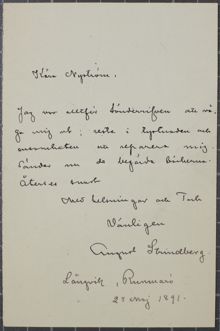 Käre Nyström,
Jag var alltför sönderrifven att vå-
ga mig ut; reste i tystnaden och
ensamheten att reparera mig.
Sänder nu de begärda böckerna.
Återses snart
Med helsningar och Tack
Vänligen
August Strindberg
Långvik, Runmarö
1891.